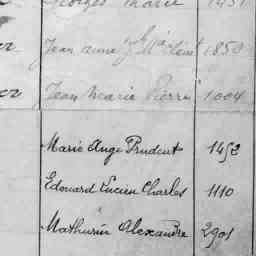 Georges Marie 1451
Jean anne 1850
Jean Marie Pierre 1004
Marie Ange Prudent 1452
Edouard Lucien Charles 1110
Mathurin Alexandre 2901